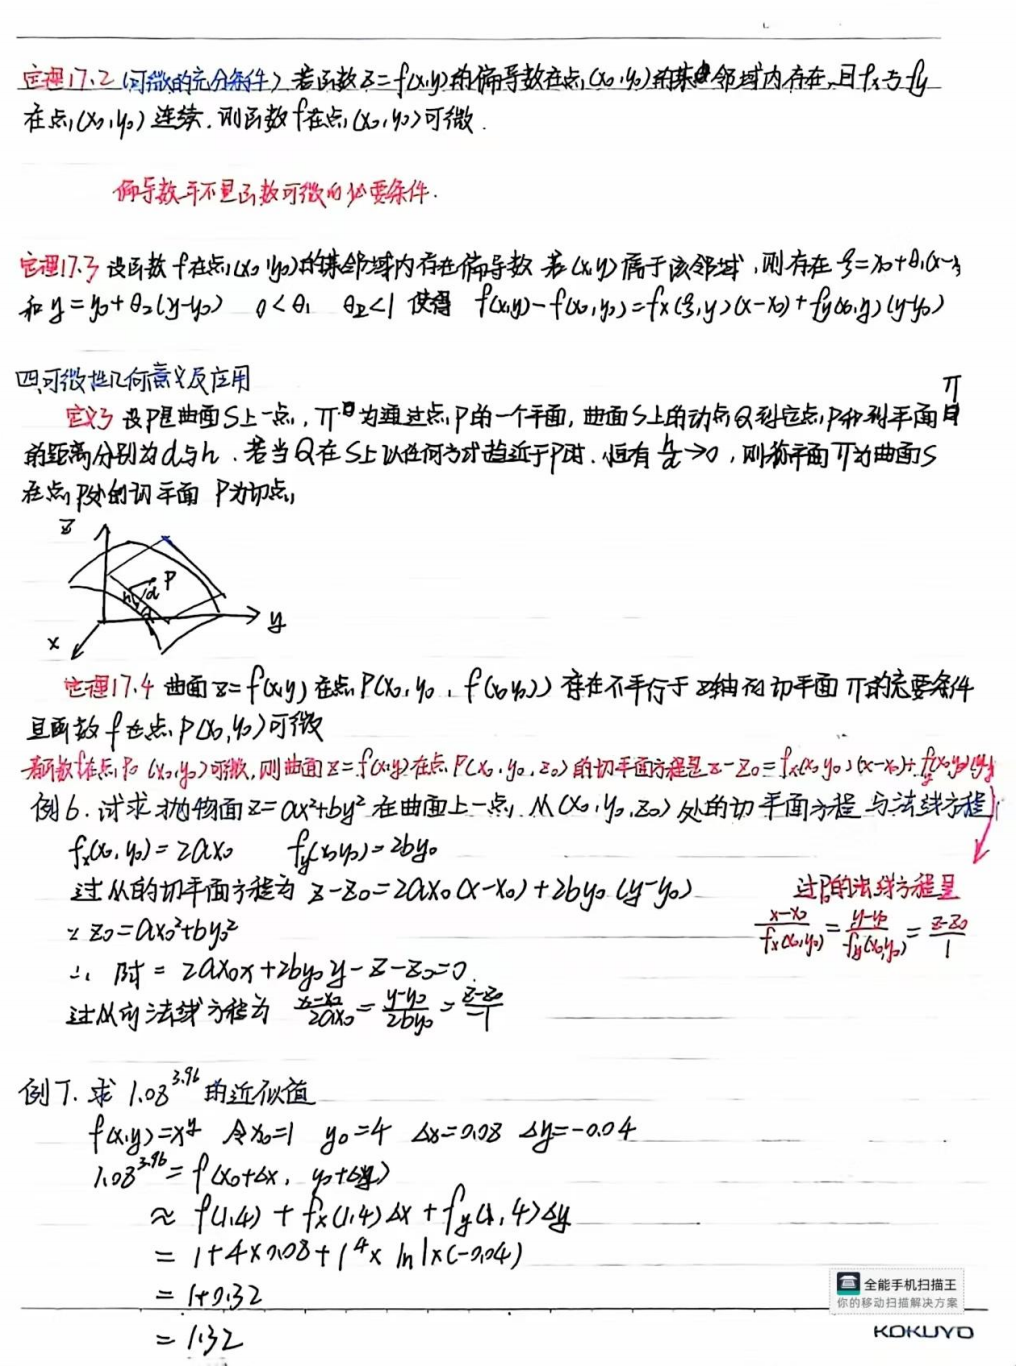 定理17.2 (可微的充分条件) 若函数z=f(x,y)的偏导数在点(x₀,y₀)的某邻域内存在,且fx与fy
在点(x₀,y₀)连续.则函数f在点(x₀,y₀)可微.
偏导数并不是函数可微的必要条件.
定理17.3 设函数f在点(x₀,y₀)的某邻域内存在偏导数 若(x,y)属于该邻域,则存在ξ=x₀+θ₁(x-x
和y=y₀+θ₂(y-y₀) 0<θ₁ θ₂<1 使得 f(x,y)-f(x₀,y₀)=fx(ξ,y)(x-x₀)+fy(x₀,y)(y-y₀)
四.可微性几何意义及应用
定义3 设P是曲面S上一点, π 为通过点P的一个平面,曲面S上的动点Q到定点P和到平面π
的距离分别为d与h.若当Q在S上以任何方式趋近于P时.恒有 h/d→0,则称平面π为曲面S
在点P处的切平面 P为切点
z
P
h d
y
x
定理17.4 曲面z=f(x,y)在点P(x₀,y₀,f(x₀,y₀))存在不平行于z轴的切平面π的充要条件
是函数f在点P(x₀,y₀)可微
若函数f在点P₀(x₀,y₀)可微,则曲面z=f(x,y)在点P(x₀,y₀,z₀)的切平面方程是z-z₀=fx(x₀,y₀)(x-x₀)+fy(x₀,y₀)(y-y
例6.试求抛物面z=ax²+by²在曲面上一点M(x₀,y₀,z₀)处的切平面方程与法线方程
fx(x₀,y₀)=2ax₀ fy(x₀y₀)=2by₀
过M的切平面方程为 z-z₀=2ax₀(x-x₀)+2by₀(y-y₀)
∵ z₀=ax₀²+by₀²
∴ 原式= 2ax₀x+2by₀y-z-z₀=0.
过M的法线方程为 (x-x₀)/(2ax₀)=(y-y₀)/(2by₀)=(z-z₀)/(-1)
过P₀的法线方程是
(x-x₀)/fx(x₀,y₀)=(y-y₀)/fy(x₀,y₀)=(z-z₀)/1
例7.求1.08^3.96的近似值
f(x,y)=x^y 令x₀=1 y₀=4 Δx=0.08 Δy=-0.04
1.08^3.96=f(x₀+Δx, y₀+Δy)
≈ f(1,4)+fx(1,4)Δx+fy(1,4)Δy
= 1+4×0.08+1⁴×ln1×(-0.04)
= 1+0.32
= 1.32
全能手机扫描王
你的移动扫描解决方案
KOKUYO